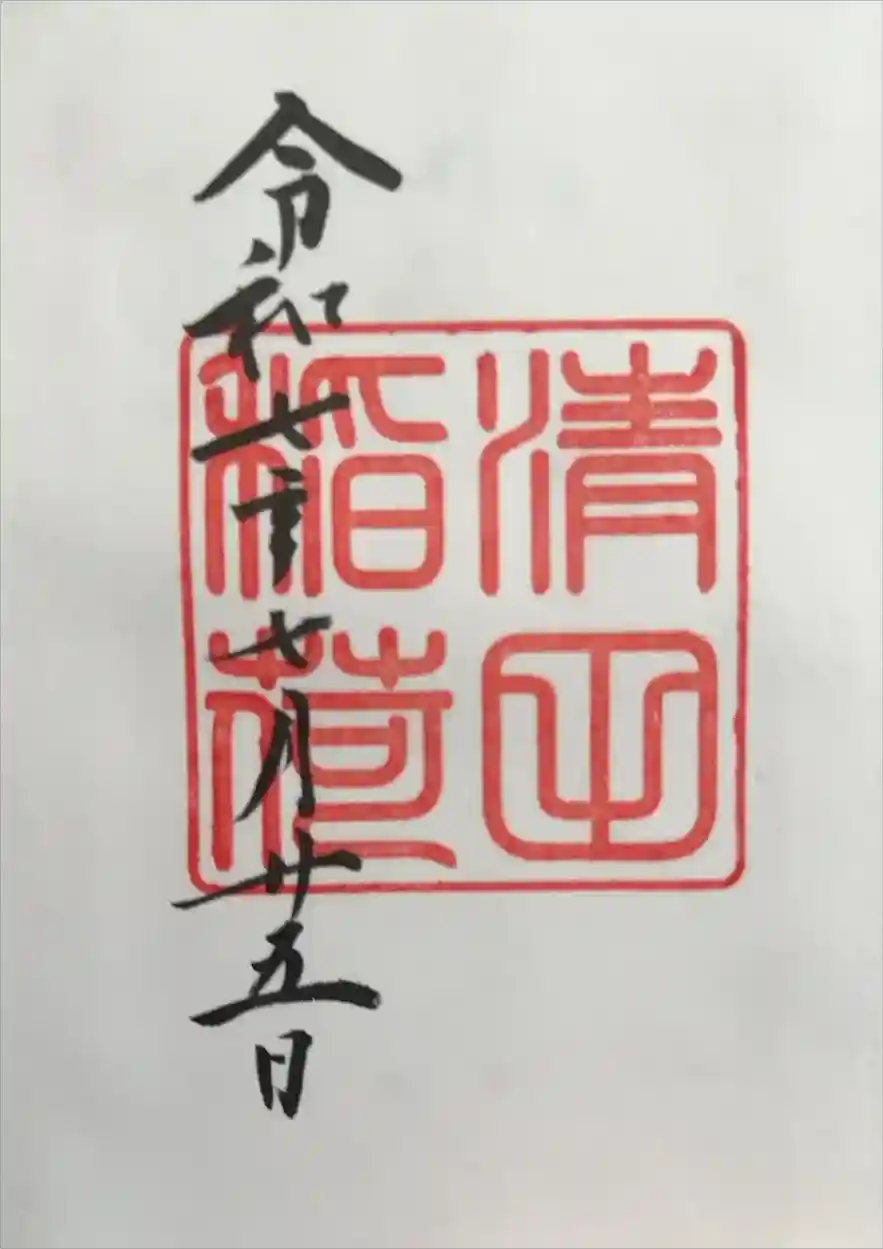 清田
稲荷
令和七年七月廿五日